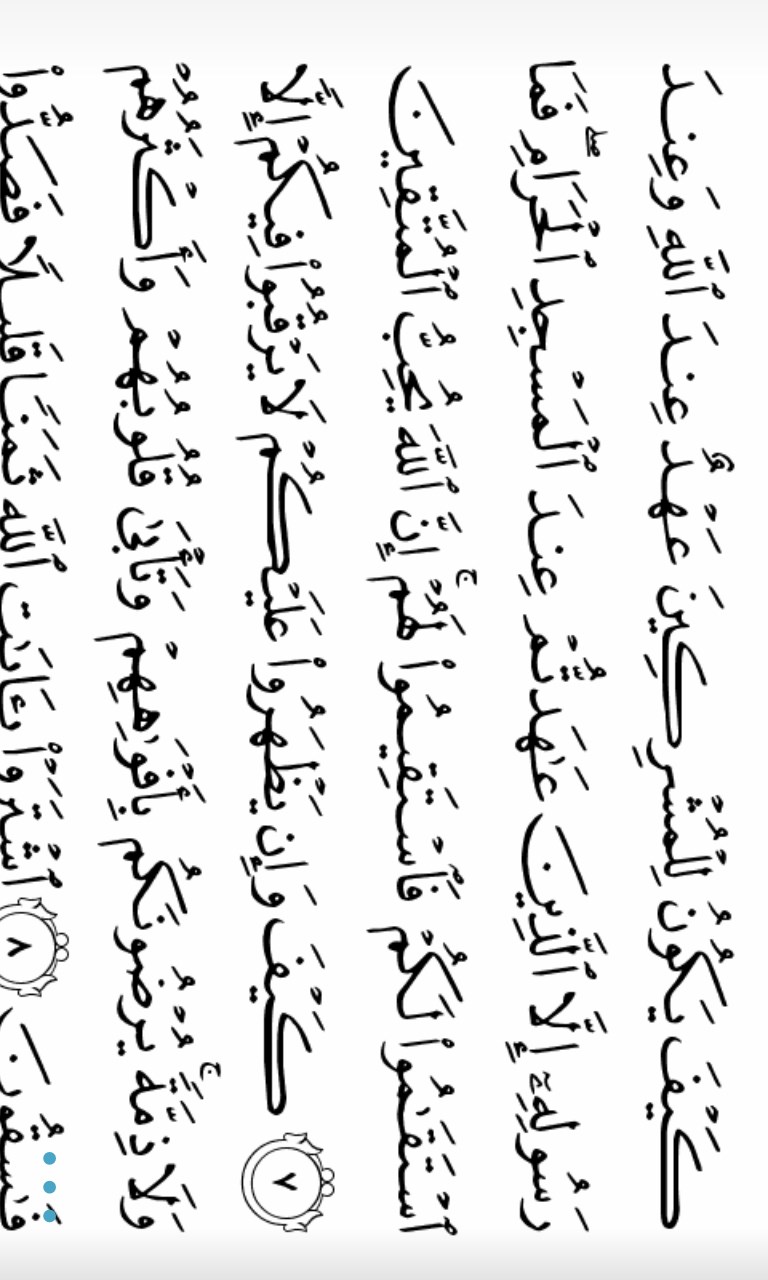 كَيْفَ يَكُونُ لِلْمُشْرِكِينَ عَهْدٌ عِندَ ٱللَّهِ وَعِندَ
رَسُولِهِۦٓ إِلَّا ٱلَّذِينَ عَٰهَدتُّمْ عِندَ ٱلْمَسْجِدِ ٱلْحَرَامِ ۖ فَمَا
ٱسْتَقَٰمُوا۟ لَكُمْ فَٱسْتَقِيمُوا۟ لَهُمْ ۚ إِنَّ ٱللَّهَ يُحِبُّ ٱلْمُتَّقِينَ
٧ كَيْفَ وَإِن يَظْهَرُوا۟ عَلَيْكُمْ لَا يَرْقُبُوا۟ فِيكُمْ إِلًّا
وَلَا ذِمَّةً ۚ يُرْضُونَكُم بِأَفْوَٰهِهِمْ وَتَأْبَىٰ قُلُوبُهُمْ وَأَكْثَرُهُمْ
فَٰسِقُونَ ٨ ٱشْتَرَوْا۟ بِـَٔايَٰتِ ٱللَّهِ ثَمَنًا قَلِيلًا فَصَدُّوا۟